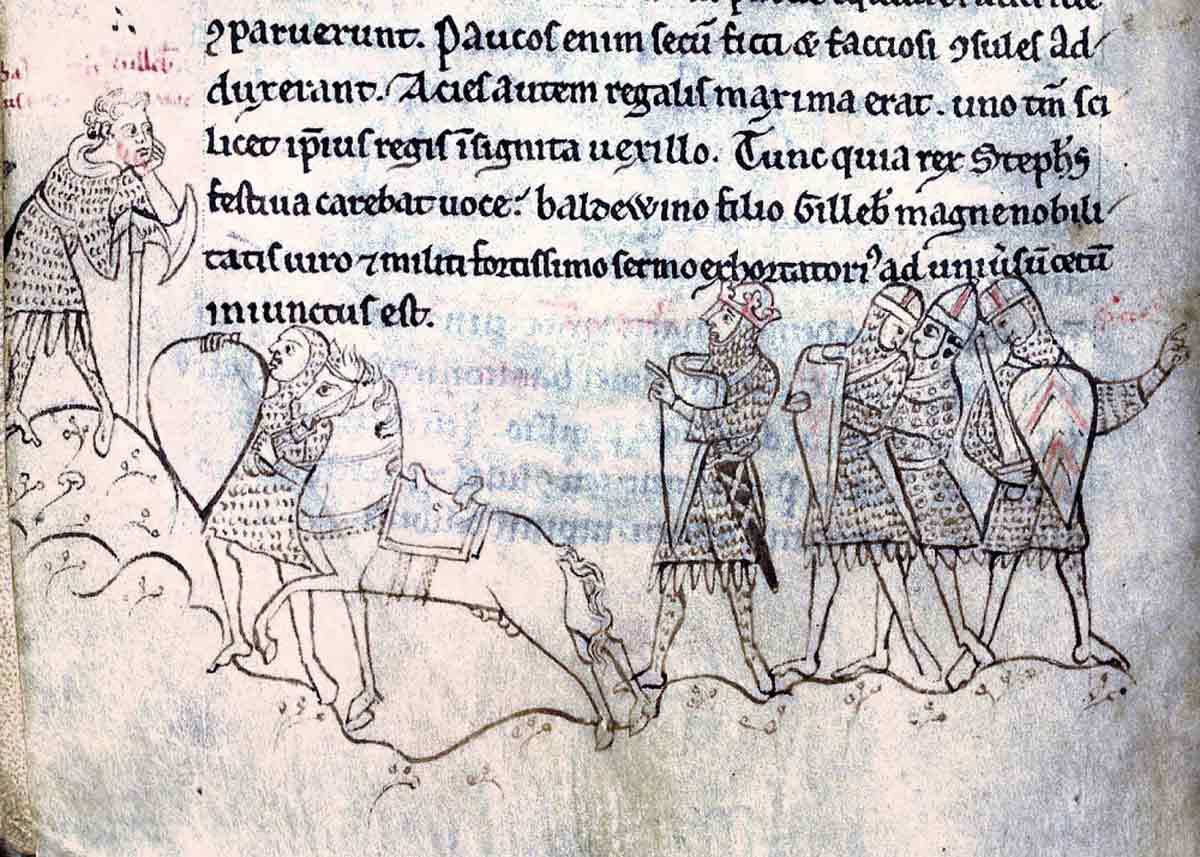 ꝯparuerunt. Paucos enim secū ficti & facciosi ꝯsules ad
duxerant. Acies autem regalis maxima erat. uno tm̄ sci
licet ip̄ius regis īsignita uexillo. Tunc quia rex Steph̄s
festiua carebat uoce: baldewino filio Gilleb̄ magne nobili
tatis uiro ⁊ militi fortissimo sermo exhortatori᷒ ad uniu̓sū cetū
iniunctus est.